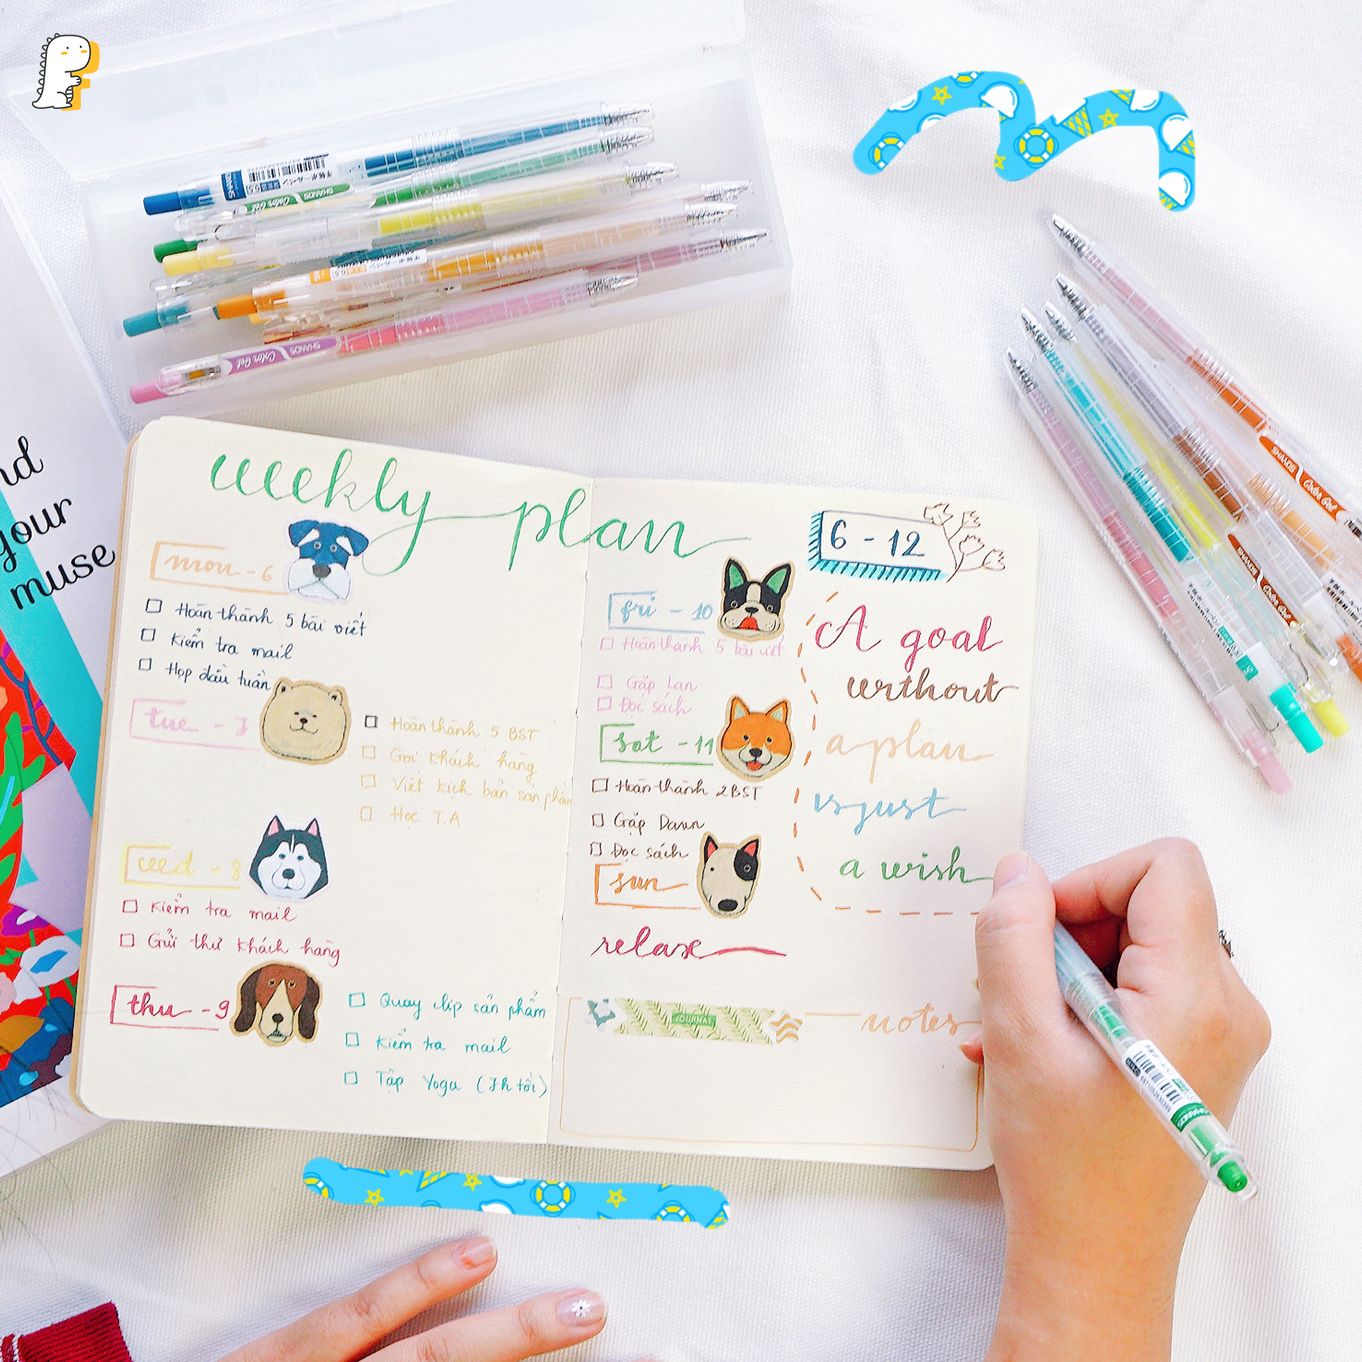 weekly plan
6 - 12
mon - 6
Hoàn thành 5 bài viết
Kiểm tra mail
Họp đầu tuần
tue - 7
Hoàn thành 5 BST
Gọi khách hàng
Viết kịch bản sản phẩm
Học T.A
wed - 8
Kiểm tra mail
Gửi thư khách hàng
thu - 9
Quay clip sản phẩm
Kiểm tra mail
Tập Yoga (7h tối)
fri - 10
Hoàn thành 5 bài viết
Gặp Lan
Đọc sách
sat - 11
Hoàn thành 2BST
Gặp Dawn
Đọc sách
sun
relax
A goal
without
a plan
is just
a wish
JOURNAL
notes
nd
your
muse
SHANDS Color Gel
SHANDS Color Gel
SHANDS Color Gel
SHANDS Color Gel